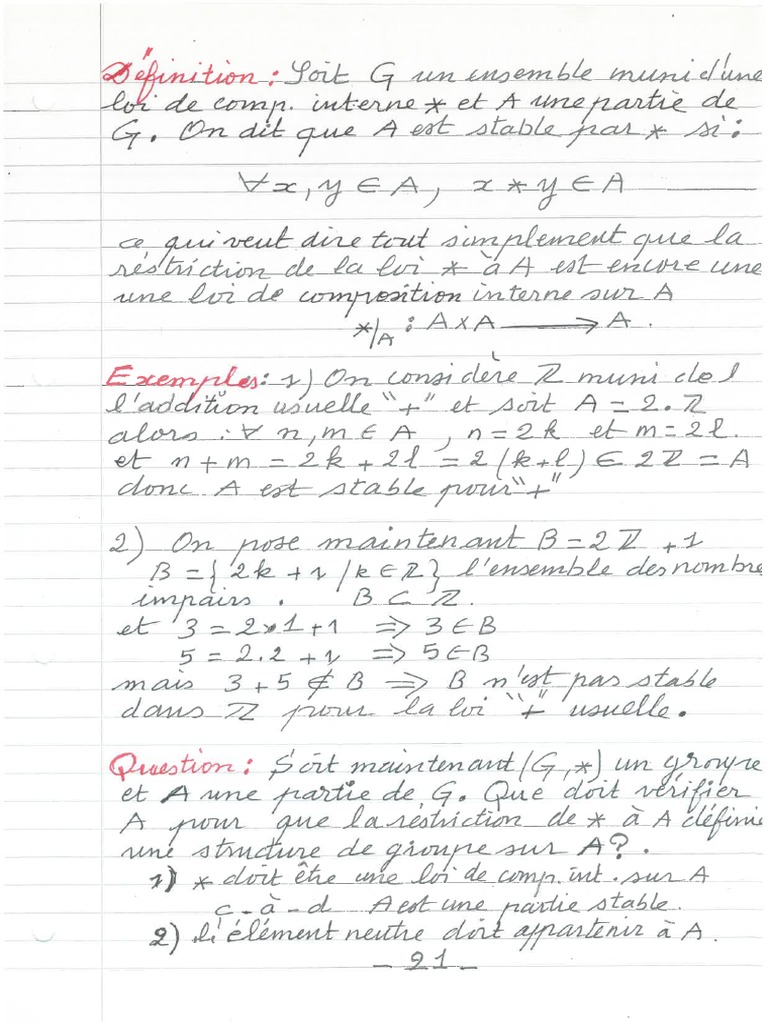 Définition : Soit G un ensemble muni d'une
loi de comp. interne * et A une partie de
G. On dit que A est stable par * si :
∀x, y ∈ A, x * y ∈ A
ce qui veut dire tout simplement que la
réstriction de la loi * à A est encore une
une loi de composition interne sur A
*/A : A x A ⟶ A.
Exemples : 1) On considère ℤ muni de l
l'addition usuelle "+" et soit A = 2.ℤ
alors : ∀ n, m ∈ A , n = 2k et m = 2l.
et n + m = 2k + 2l = 2(k+l) ∈ 2ℤ = A
donc A est stable pour "+"
2) On pose maintenant B = 2ℤ + 1
B = { 2k + 1 / k ∈ ℤ } l'ensemble des nombre
impairs . B ⊂ ℤ.
et 3 = 2 x 1 + 1 ⟹ 3 ∈ B
5 = 2.2 + 1 ⟹ 5 ∈ B
mais 3 + 5 ∉ B ⟹ B n'est pas stable
dans ℤ pour la loi "+" usuelle.
Question : Soit maintenant (G, *) un groupe
et A une partie de G. Que doit vérifier
A pour que la réstriction de * à A définie
une structure de groupe sur A ? .
1) * doit être une loi de comp. int. sur A
c-à-d A est une partie stable.
2) l'élément neutre doit appartenir à A.
- 21 -